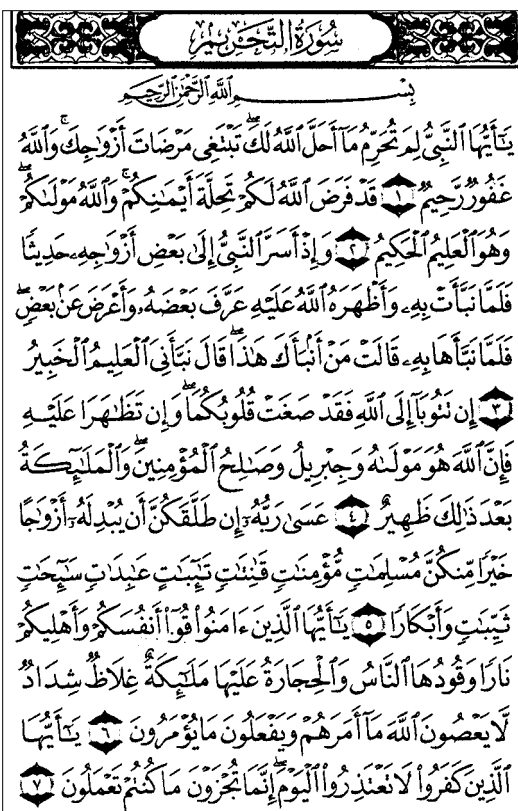 سُورَةُ التَّحْرِيمِ
بِسْمِ ٱللَّهِ ٱلرَّحْمَٰنِ ٱلرَّحِيمِ
يَٰٓأَيُّهَا ٱلنَّبِىُّ لِمَ تُحَرِّمُ مَآ أَحَلَّ ٱللَّهُ لَكَ ۖ تَبْتَغِى مَرْضَاتَ أَزْوَٰجِكَ ۚ وَٱللَّهُ
غَفُورٌ رَّحِيمٌ ١ قَدْ فَرَضَ ٱللَّهُ لَكُمْ تَحِلَّةَ أَيْمَٰنِكُمْ ۚ وَٱللَّهُ مَوْلَىٰكُمْ ۖ
وَهُوَ ٱلْعَلِيمُ ٱلْحَكِيمُ ٢ وَإِذْ أَسَرَّ ٱلنَّبِىُّ إِلَىٰ بَعْضِ أَزْوَٰجِهِۦ حَدِيثًا
فَلَمَّا نَبَّأَتْ بِهِۦ وَأَظْهَرَهُ ٱللَّهُ عَلَيْهِ عَرَّفَ بَعْضَهُۥ وَأَعْرَضَ عَنۢ بَعْضٍ ۖ
فَلَمَّا نَبَّأَهَا بِهِۦ قَالَتْ مَنْ أَنۢبَأَكَ هَٰذَا ۖ قَالَ نَبَّأَنِىَ ٱلْعَلِيمُ ٱلْخَبِيرُ
٣ إِن تَتُوبَآ إِلَى ٱللَّهِ فَقَدْ صَغَتْ قُلُوبُكُمَا ۖ وَإِن تَظَٰهَرَا عَلَيْهِ
فَإِنَّ ٱللَّهَ هُوَ مَوْلَىٰهُ وَجِبْرِيلُ وَصَٰلِحُ ٱلْمُؤْمِنِينَ ۖ وَٱلْمَلَٰٓئِكَةُ
بَعْدَ ذَٰلِكَ ظَهِيرٌ ٤ عَسَىٰ رَبُّهُۥٓ إِن طَلَّقَكُنَّ أَن يُبْدِلَهُۥٓ أَزْوَٰجًا
خَيْرًا مِّنكُنَّ مُسْلِمَٰتٍ مُّؤْمِنَٰتٍ قَٰنِتَٰتٍ تَٰٓئِبَٰتٍ عَٰبِدَٰتٍ سَٰٓئِحَٰتٍ
ثَيِّبَٰتٍ وَأَبْكَارًا ٥ يَٰٓأَيُّهَا ٱلَّذِينَ ءَامَنُوا۟ قُوٓا۟ أَنفُسَكُمْ وَأَهْلِيكُمْ
نَارًا وَقُودُهَا ٱلنَّاسُ وَٱلْحِجَارَةُ عَلَيْهَا مَلَٰٓئِكَةٌ غِلَاظٌ شِدَادٌ
لَّا يَعْصُونَ ٱللَّهَ مَآ أَمَرَهُمْ وَيَفْعَلُونَ مَا يُؤْمَرُونَ ٦ يَٰٓأَيُّهَا
ٱلَّذِينَ كَفَرُوا۟ لَا تَعْتَذِرُوا۟ ٱلْيَوْمَ ۖ إِنَّمَا تُجْزَوْنَ مَا كُنتُمْ تَعْمَلُونَ ٧